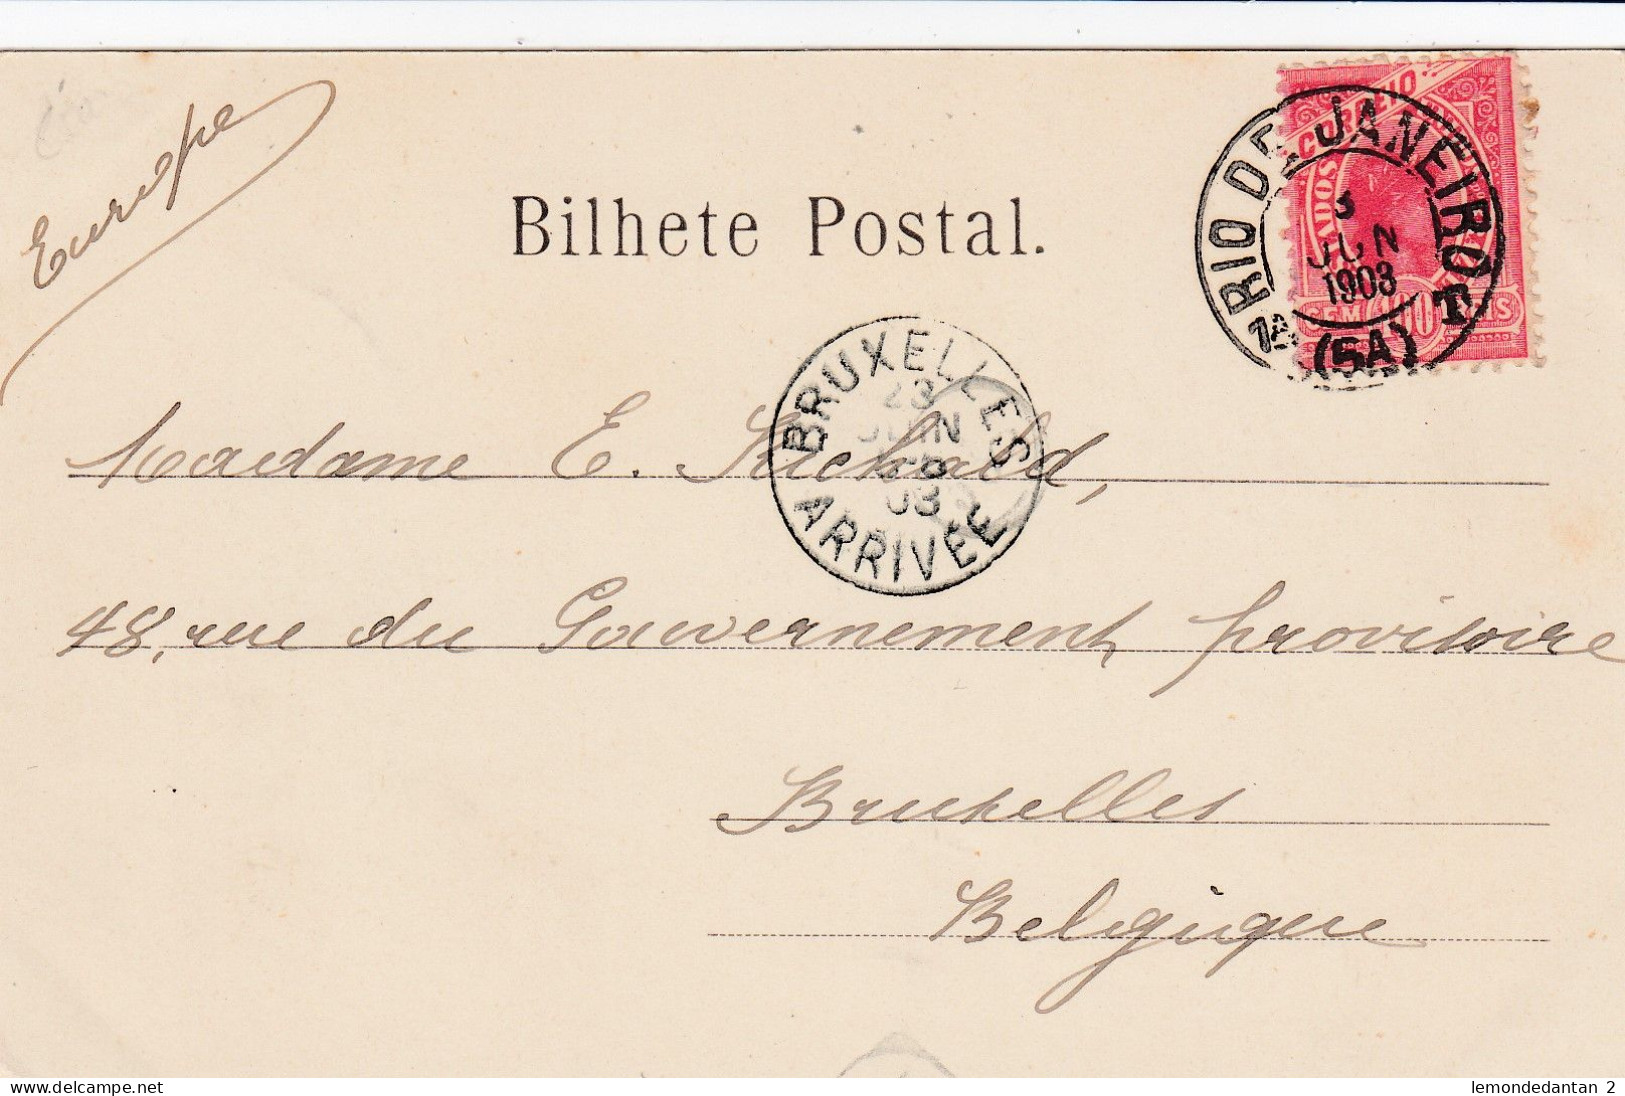 Europe
Bilhete Postal.
CORREIO
RIO DE JANEIRO
3
JUN
1903
T
(SA)
100
BRUXELLES
23
JUIN
03
ARRIVÉE
Madame E.
48, rue du Gouvernement provisoire
Bruxelles
Belgique
lemondedantan 2
www.delcampe.net